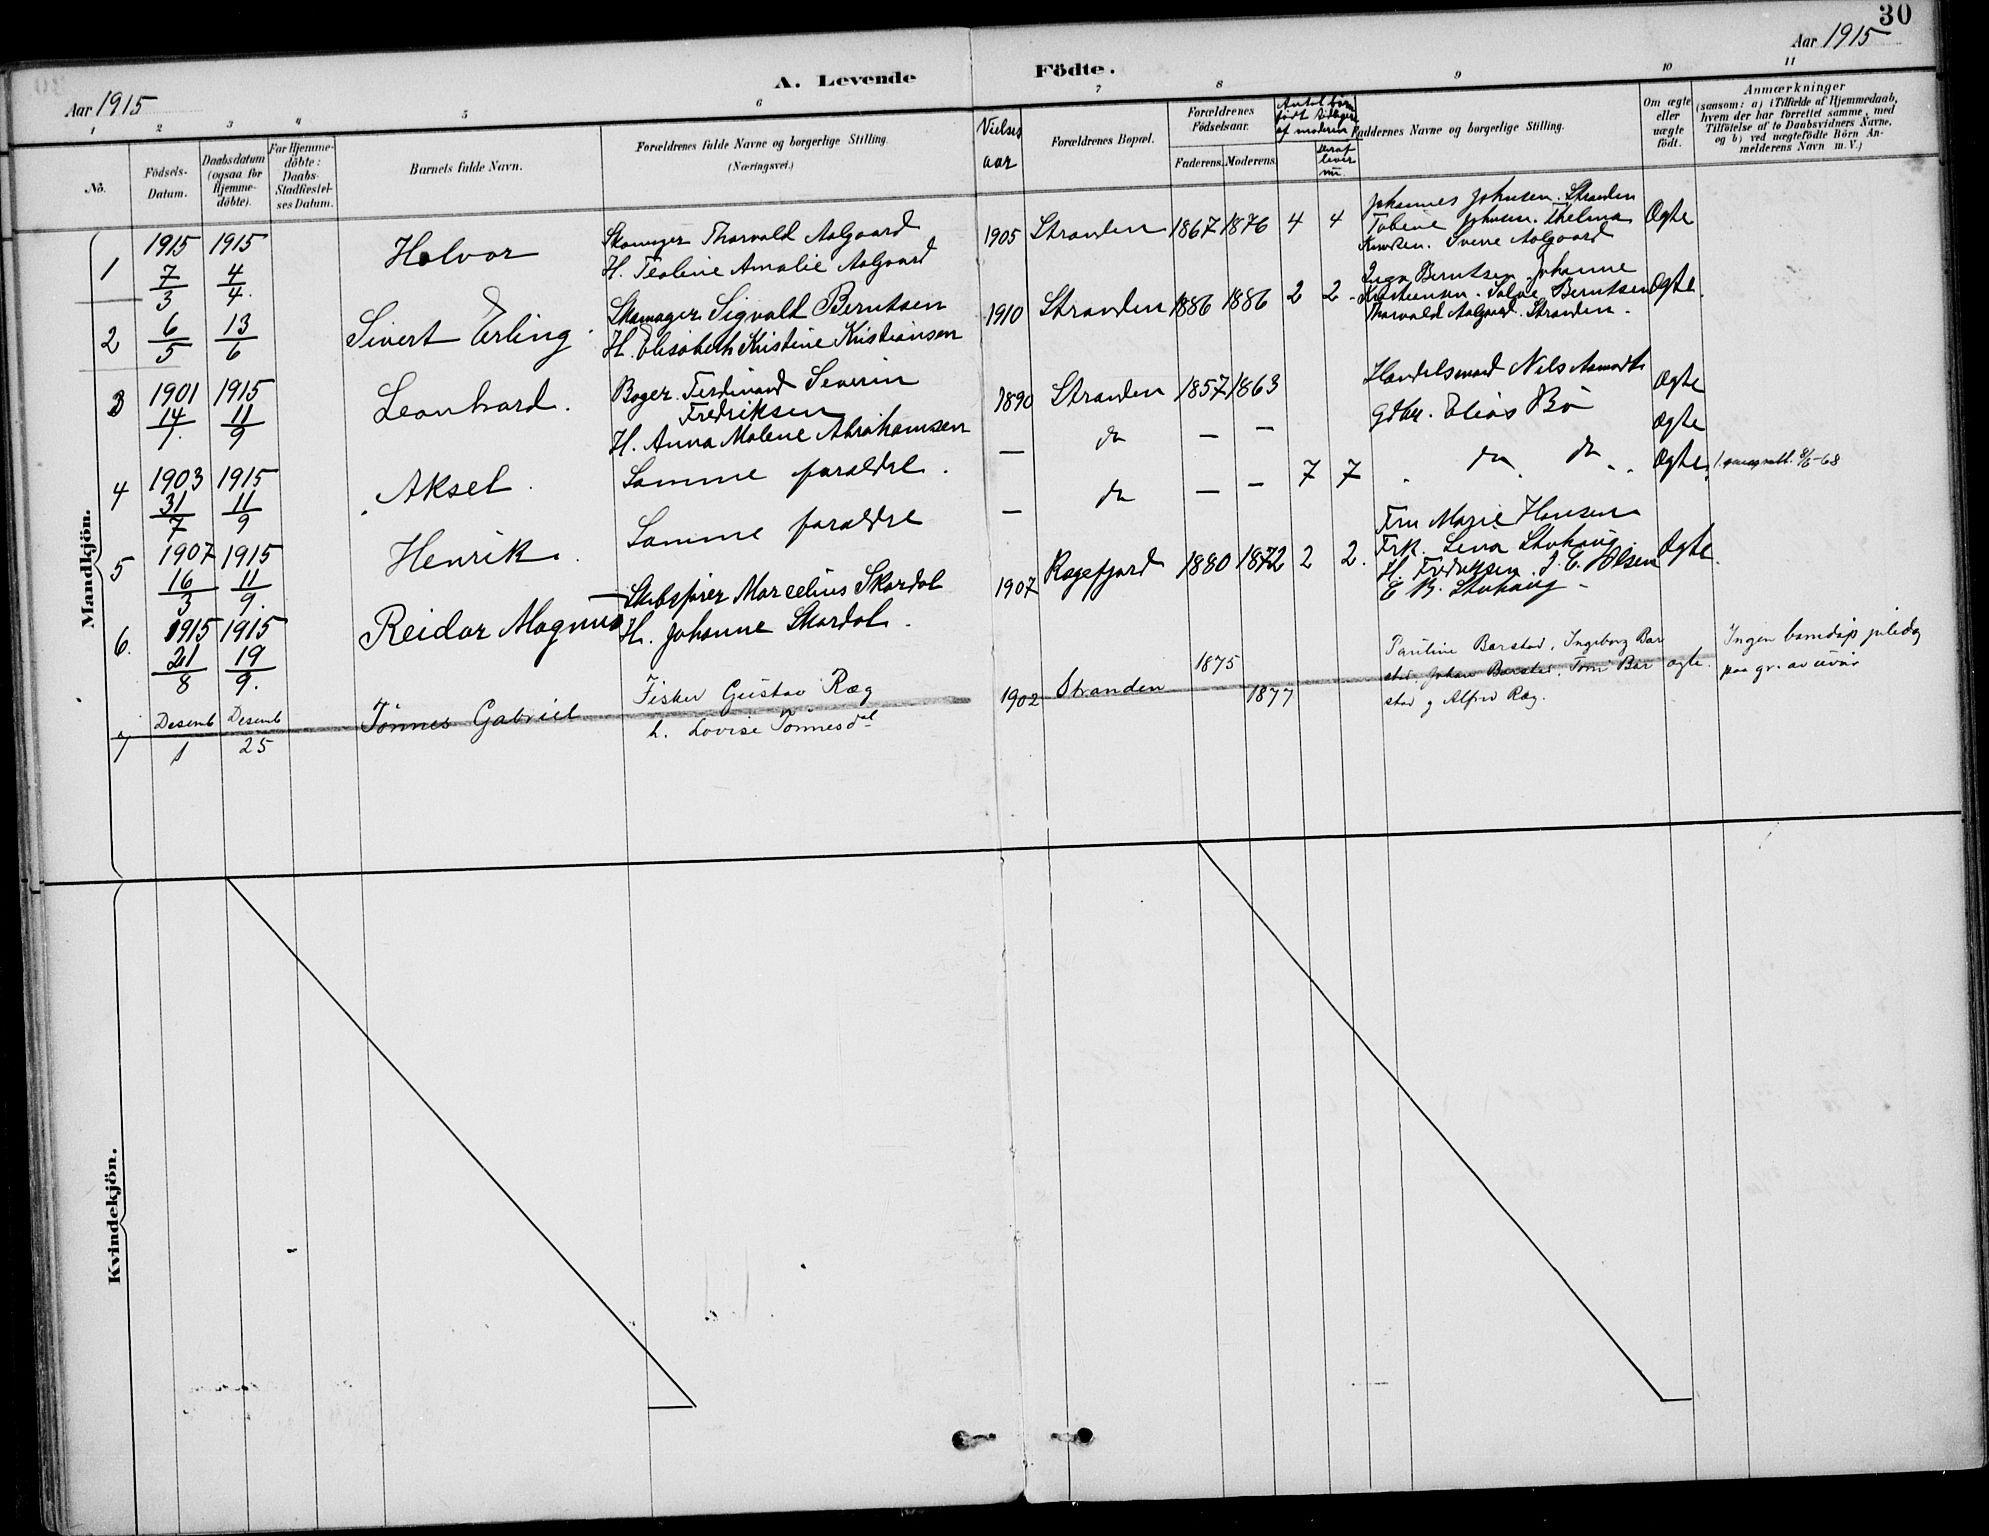 30
Aar 1915
Aar 1915
A. Levende Födte.
1 2 3 4 5 6 7 8 9 10 11
No.
Födsels-
Datum.
Daabsdatum
(ogsaa for
Hjemme-
döbte).
For Hjemme-
döbte:
Daabs-
Stadfæstel-
ses Datum.
Barnets fulde Navn.
Forældrenes fulde Navne og borgerlige Stilling.
(Næringsvei.)
Vielses
aar
Forældrenes Bopæl.
Forældrenes
Födselsaar.
Faderens. Moderens.
Antal børn
født tidligere
af moderen
Deraf
lever
nu.
Faddernes Navne og borgerlige Stilling.
Om ægte
eller
uægte
født.
Anmærkninger
(saasom: a) i Tilfælde af Hjemmedaab,
hvem der har forrettet samme, med
Tilföielse af to Daabsvidners Navne.
og b) ved uægtefödte Börn An-
melderens Navn m. V.)
Mandkjön.
1 1915 7/3 1915 4/4. Halvor
Skomager Thorvald Aalgaard
H. Teoline Amalie Aalgaard
1905 Stranden 1867 1876 4 4
Johannes Johnsen. Stranden
Tobine Johnsen. Thelma
Knudsen. Svene Aalgaard
Ægte
2 6/5 13/6 Sivert Erling.
Skomager Sigvalt Berntsen
H. Elisabeth Kristine Kristiansen
1910 Stranden 1886 1886 2 2
Inga Berntsen. Johanne
Kristiansen. Salve Berntsen
Thorvald Aalgaard. Stranden.
Ægte.
3 1901 14/7. 1915 11/9 Leonhard.
Bager. Ferdinand Severin
Fredriksen
H. Anna Malene Abrahamsen
1890 Stranden 1857 1863
Handelsmand Nils Aamodt
Gdbr. Elias Bö
Ægte
4 1903 31/7 1915 11/9 Aksel.
Samme forældre.
— do — —
Ægte
5 1907 16/3 1915 11/9. Henrik.
Samme forældre
— do — — 7 7 do do Ægte.
8/6-68
6. 1915 21/8 1915 19/9. Reidar Magnus
Skibsfører Marcelius Skardal
H. Johanne Skardal.
1907 Rægefjord 1880 1872 2 2.
Fru Marie Hansen
Frk. Lena Stuhaug
H. Fredriksen. J. E. Olsen
E B. Stuhaug
Ægte.
7 Desemb 1 Desemb 25 Tönnes Gabriel
Fisker Gustav Ræg
h. Lovise Tönnesdal
1902 Stranden 1875 1877
Pauline Barstad, Ingeborg Bar
stad, Johan Barstad, Tom Bar
stad og Alfred Ræg.
ægte.
Ingen barnedåp juledag
paa gr. av uvær
Kvindekjön.